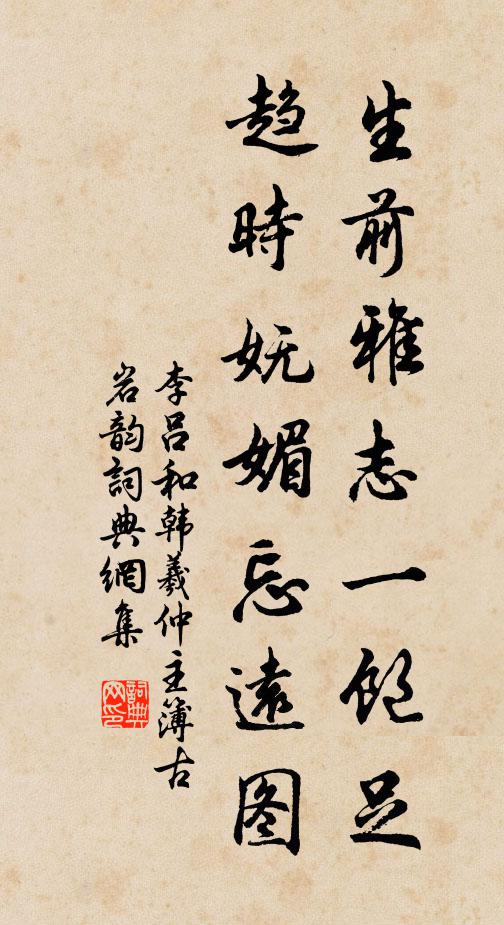 生前雅志一饱足
趋時妩媚忘遠图
李吕和韩羲仲主簿古
岩韵詞典網集
詞典网印